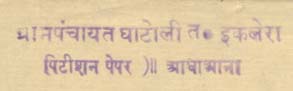 ग्रामपंचायत घाटोली त॰ इकलेरा
पिटीशन पेपर )॥ आधाआना